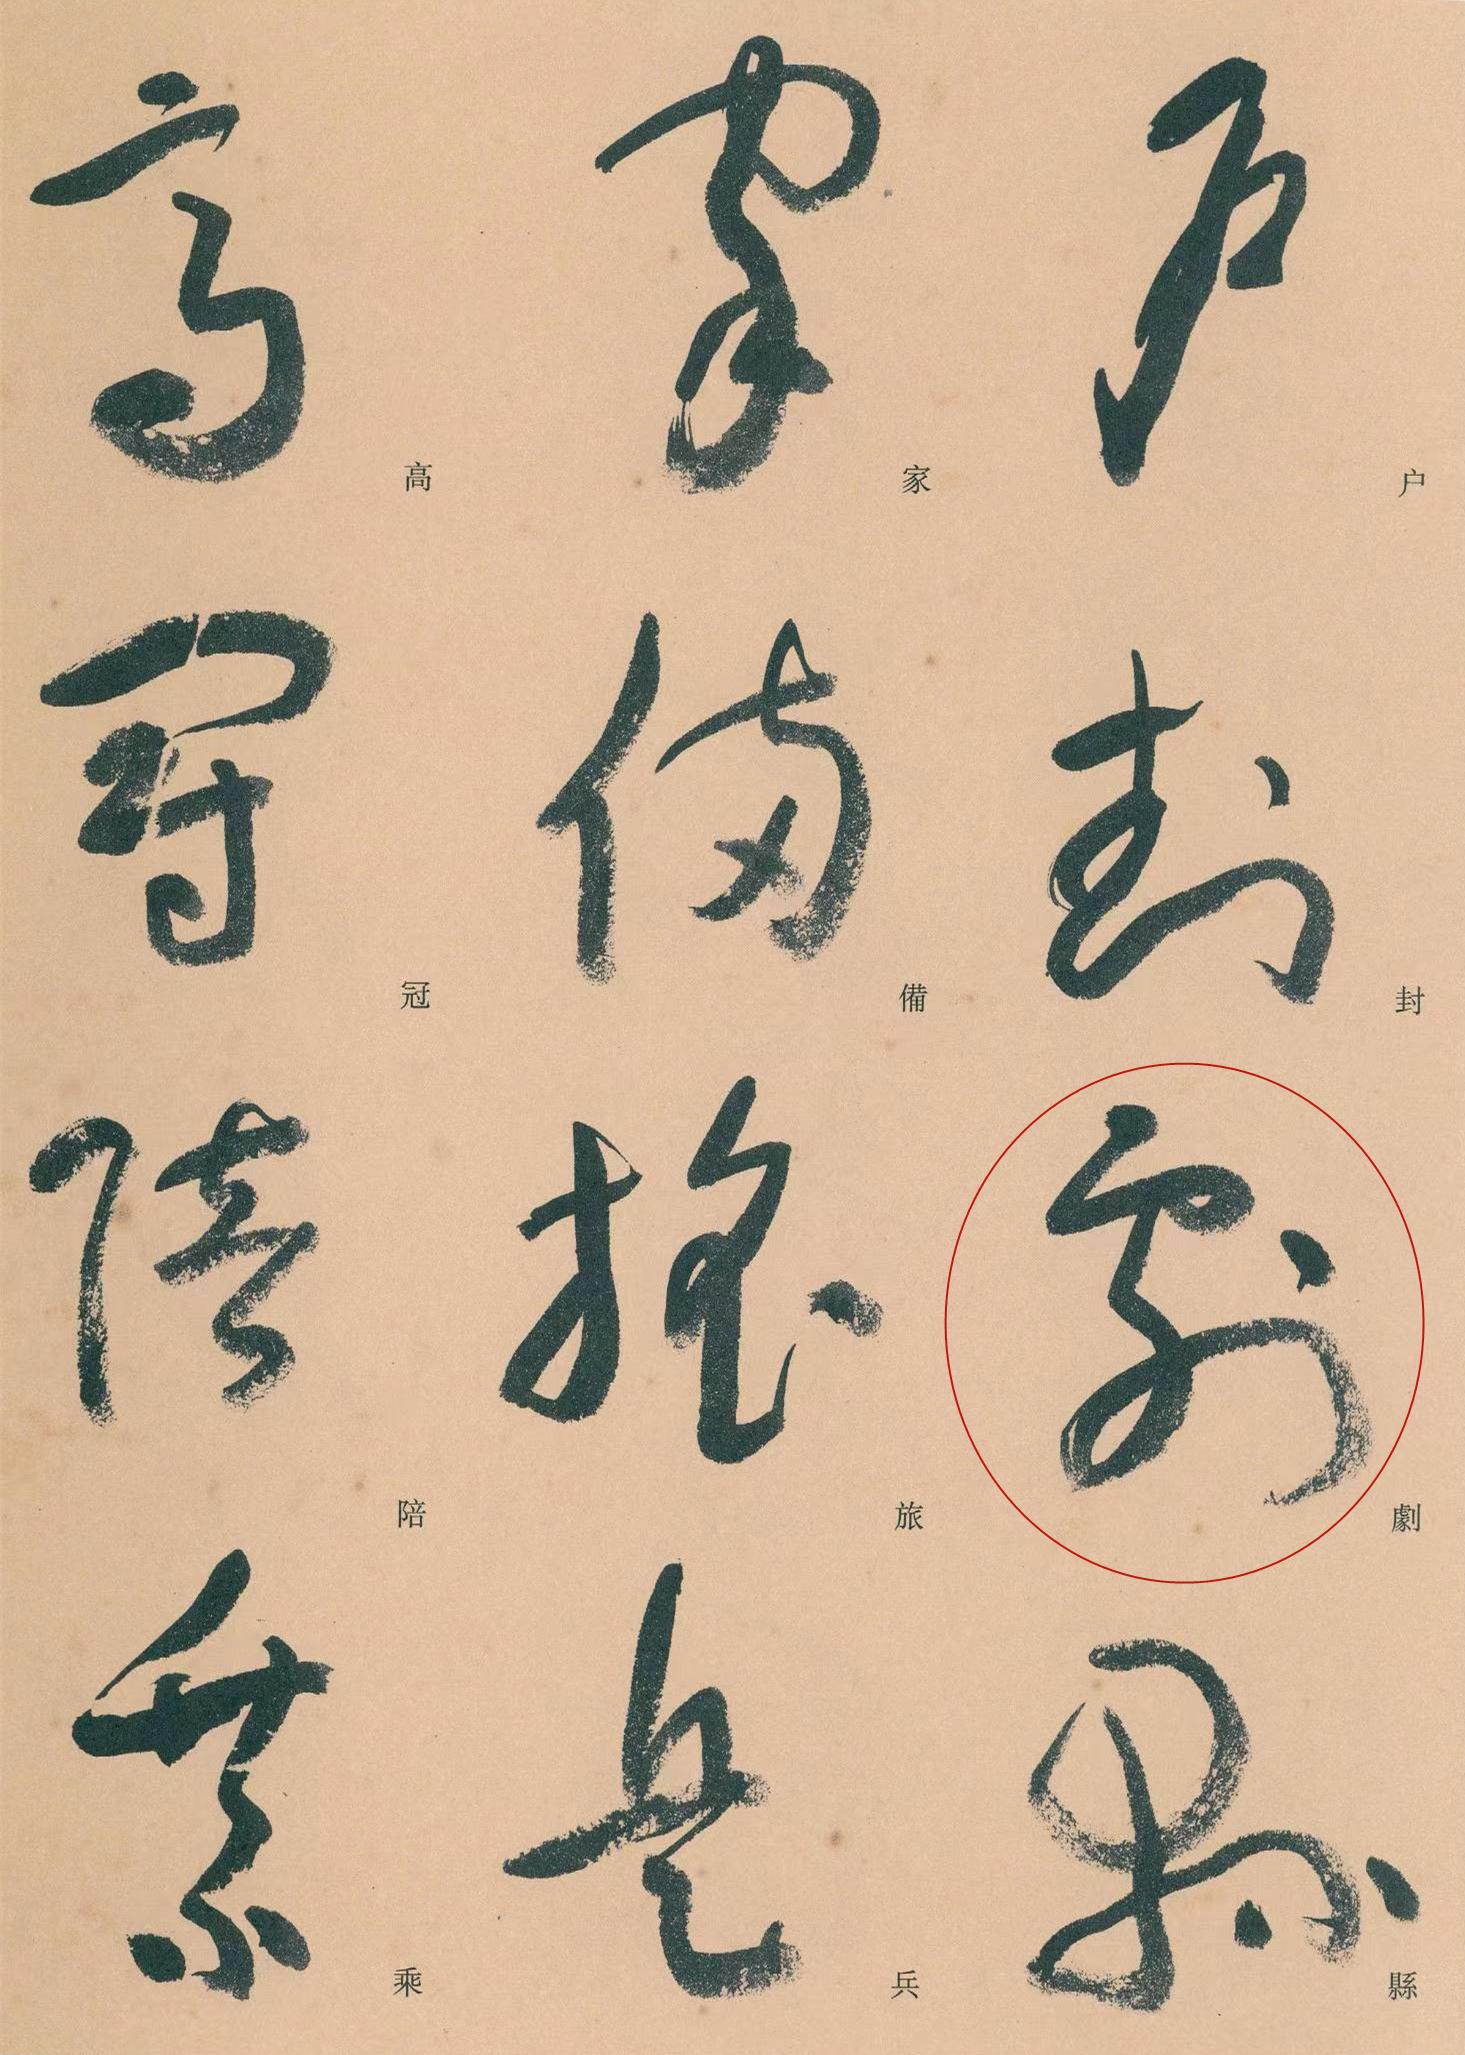 户封劇縣
家備旅兵
高冠陪乘